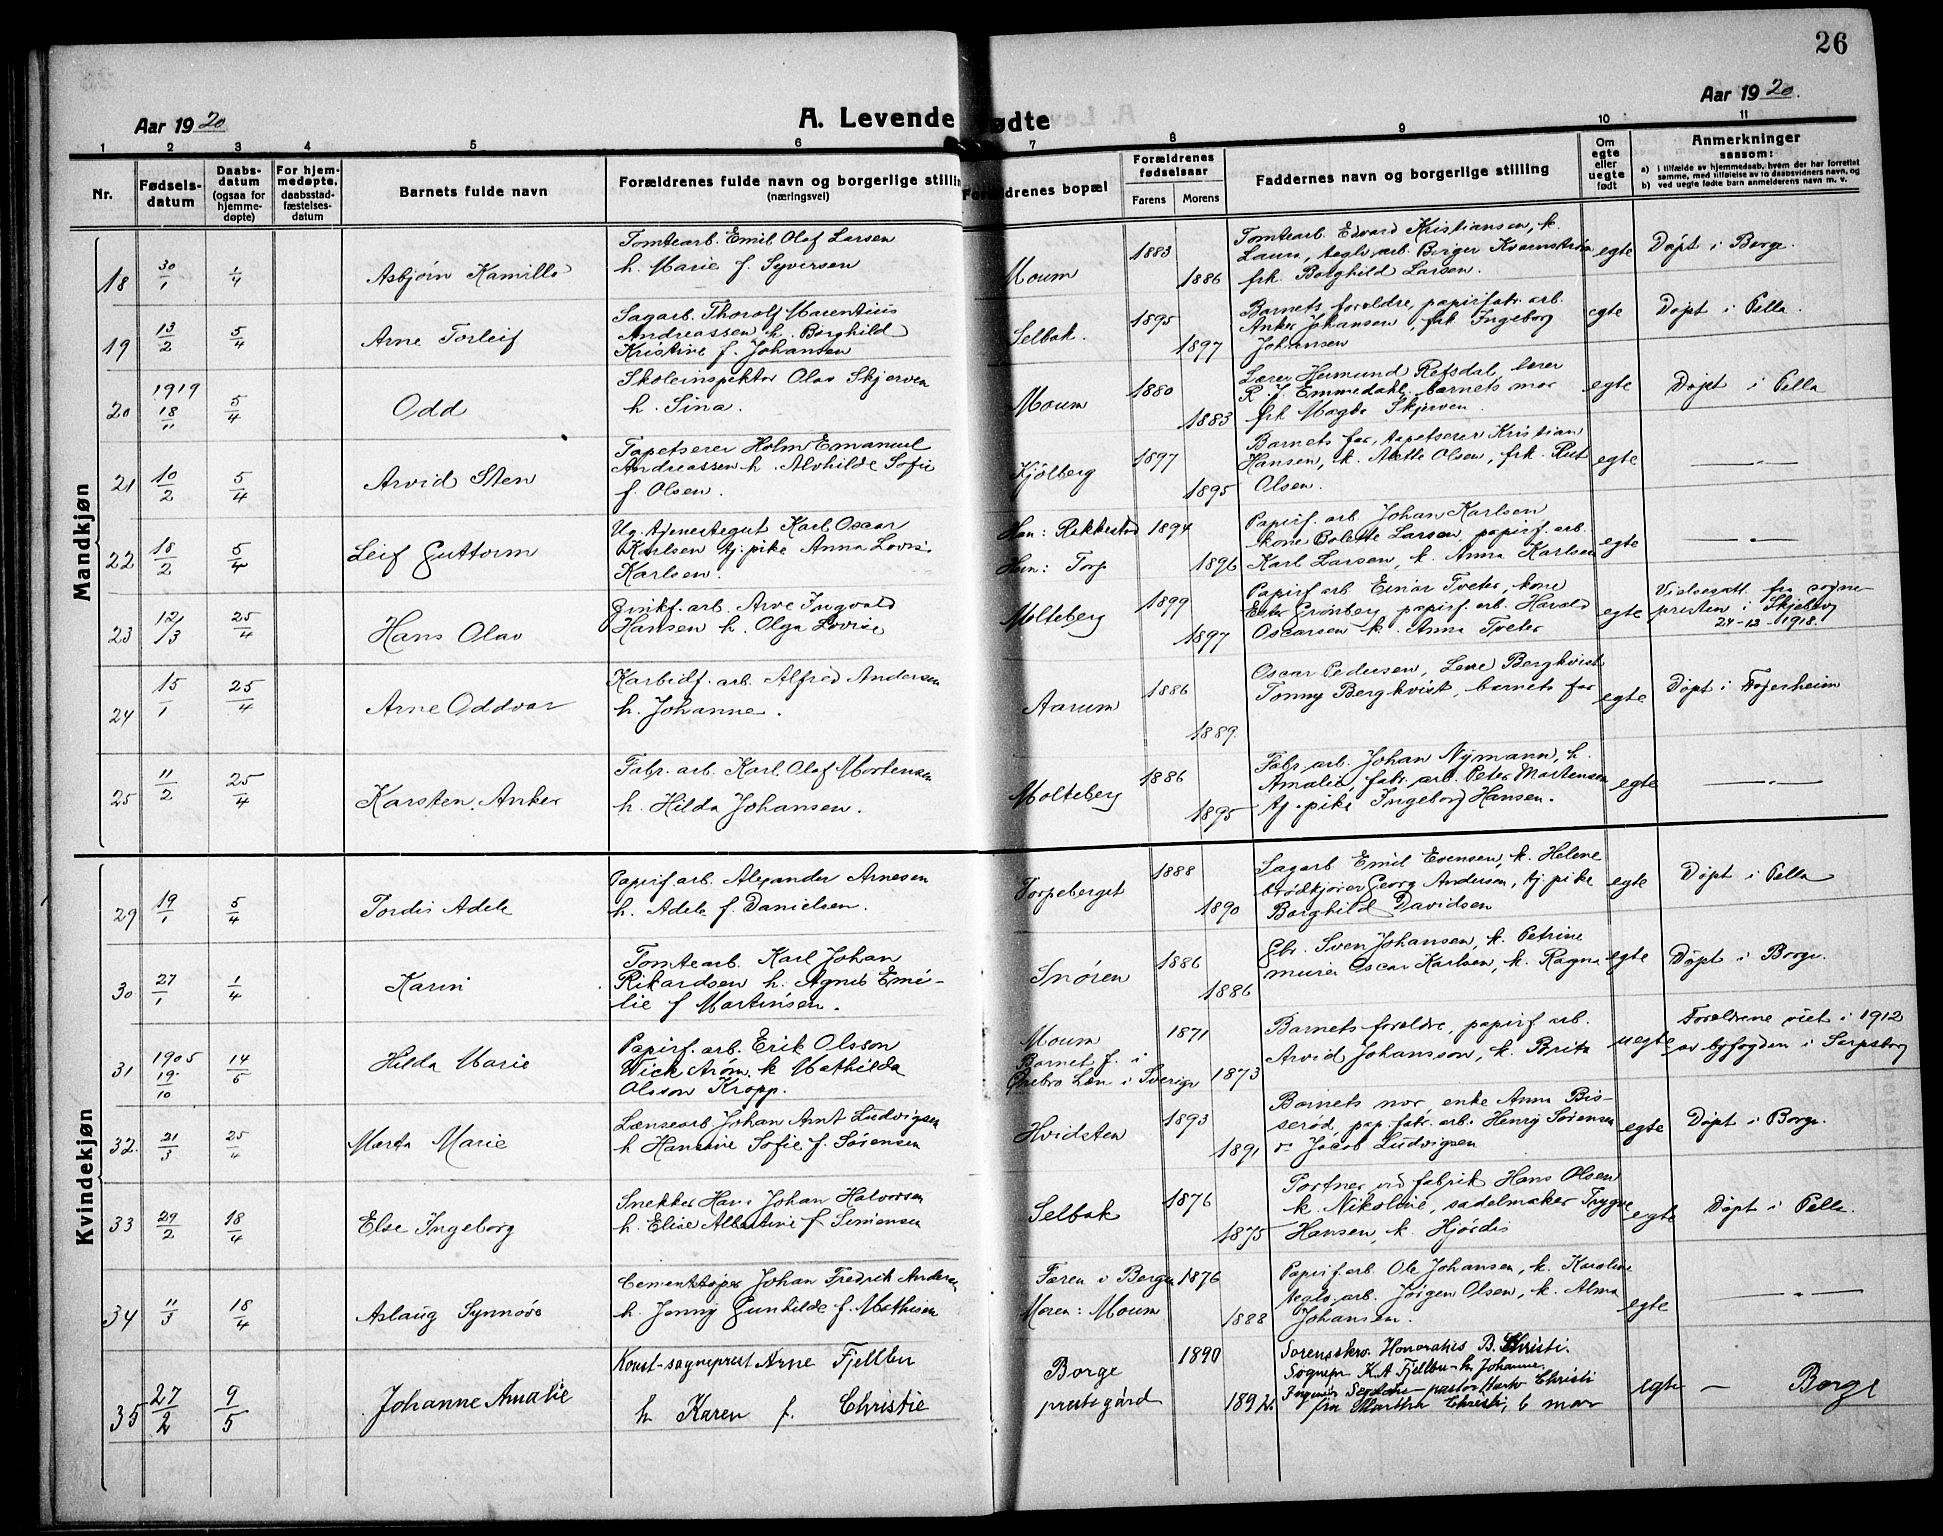 26
Aar 1920
A. Levende fødte
Aar 1920.
1 2 3 4 5 6 7 8 9 10 11
Nr.
Fødsels-
datum
Daabs-
datum
(ogsaa for
hjemme-
døpte)
For hjem-
medøpte,
daabsstad-
fæstelses-
datum
Barnets fulde navn
Forældrenes fulde navn og borgerlige stilling
(næringsvei)
Forældrenes bopæl
Forældrenes
fødselsaar
Farens Morens
Faddernes navn og borgerlige stilling
Om
egte
eller
uegte
født
Anmerkninger
saasom:
a) i tilfælde av hjemmedaab, hvem der har forrettet
samme, med tilføielse av to daabsvidners navn, og
b) ved uegte fødte barn anmelderens navn m. v.
Mandkjøn
18 30/1 1/4 Asbjørn Kamillo
Tomtearb. Emil Olaf Larsen
h. Marie f. Syversen
Moum 1883 1886
Tomtearb. Edvard Kristiansen, k.
Laura, teglv. arb. Birger Kvarnstrøm
frk. Borghild Larsen.
egte Døpt i Borge.
19 13/2 5/4 Arne Torleif
Sagarb. Thorolf Marentius
Andreassen h. Borghild
Kristine f. Johansen
Selbak. 1895 1897
Barnets foreldre, papirfabr. arb.
Anker Johansen, frk Ingeborg
Johansen
egte Døpt i Pella.
20 1919 18/11 5/4 Odd
Skoleinspektør Olav Skjerven
h. Sina.
Moum 1880 1883
Lærer Hermund Refsdal, lærer
R. J. Emmedahl, barnets mor
frk Magda Skjerven.
egte Døpt i Pella
21 10/2 5/4 Arvid Sten
Tapetserer Holm Emanuel
Andreassen h. Alvhilde Sofie
f. Olsen.
Kjølberg 1897 1895
Barnets far, tapetserer Kristian
Hansen, k. Mette Olsen, frk. Rut
Olsen.
egte —„—
22 18/2 5/4 Leif Guttorm
Ug. tjenestegut Karl Oscar
Karlsen tj. pike Anna Lovise
Karlsen.
Han: Rakkestad 1894
Hun: Torp 1896
Papirf. arb Johan Karlsen
kone Bolette Larsen, papirf. arb.
Karl Larsen, k. Anna Karlsen
egte —„—
23 12/3 25/4 Hans Olav
Zinkf. arb. Arve Ingvald
Hansen h. Olga Lovise
Molteberg 1899 1897
Papirf. arb Einar Tveter, kone
Ester Grønberg, papirf. arb. Harald
Oscarsen k. Anna Tveter
egte Vielsesatt. fra sogne-
presten i Skjeberg
24-12-1918.
24 15/1 25/4 Arne Oddvar
Karbidf. arb. Alfred Andersen
h. Johanne.
Aarum 1886 1889.
Oscar Pedersen, Lene Bergkvist
Tonny Bergkvist, barnets far
egte Døpt i
25 11/2 25/4 Karsten Anker
Fabr. arb. Karl Olaf Mortensen
h. Hilda Johansen.
Molteberg 1886 1895
Fabr. arb. Johan Nymann, h.
Amalie, fabr. arb. Peter Martensen
tj. pike Ingeborg Hansen.
egte —„—
Kvindekjøn
29 19/1 5/4 Tordis Adele
Papirf arb. Alexander Arnesen
h. Adele f. Danielsen.
Torpeberget 1888 1890
Sagarb Emil Evensen, k. Helene
brødkjører Georg Andersen, tj. pike
Borghild Davidsen
egte Døpt i Pella
30 27/1 1/4 Karin
Tomtearb. Karl Johan
Rikardsen h. Agnes Emi-
lie f Martinsen.
Snøren 1886 1886
Gbr. Sven Johansen, k. Petrine
murer Oscar Karlsen, k. Ragna
egte Døpt i Borge.
31 1905 19/10 14/5 Hilda Marie
Papirf. arb. Erik Olsson
Wickstrøm, k Mathilda
Olsson Kropp.
Moum 1871
Barnet f. i
Ørebro Læn i Sverige 1873
Barnets foreldre, papirf arb.
Arvid Johansson, k. Brita
uegte Foreldrene viet i 1912
av byfogden i Sarpsborg
32. 21/3 25/4 Marta Marie
Lænsearb Johan Arnt Ludvigsen
h Hansine Sofie f. Sørensen
Hvidsten 1893 1891
Barnets mor, enke Anna Bis-
serød, pap. fabr. arb. Henry Sørensen
o Jacob Ludvigsen
egte Døpt i Borge.
33 29/2 18/4 Else Ingeborg
Snekker Hans Johan Halvorsen
h. Elise Albertine f Simensen
Selbak 1876 1875
Portner ved fabrik Hans Olsen
k. Nikoline, sadelmaker Trygve
Hansen, k. Hjørdis
egte Døpt i Pella.
34 11/3 18/4 Aslaug Synnøve
Cementstøper Johan Fredrik Andersen
h. Jenny Gunhilde f. Mathisen
Faren i Bergen 1876
Moren: Moum 1888
Papirf. arb. Ole Johansen, k. Karoline
teglv. arb. Jørgen Olsen, k. Alma
Johansen.
egte —„—
35 27/2 9/5 Johanne Amalie
Konst-sogneprest Arne Fjellbu
h. Karen f. Christie
Borge
prestegård 1890 1892
Sorenskr. Honoratus B. Christi.
Sognepr K. A Fjellbu - h. Johanne.
Ingeniør - pastor Hartv Christi
fru Martha Christi, b mor
egte — Borge